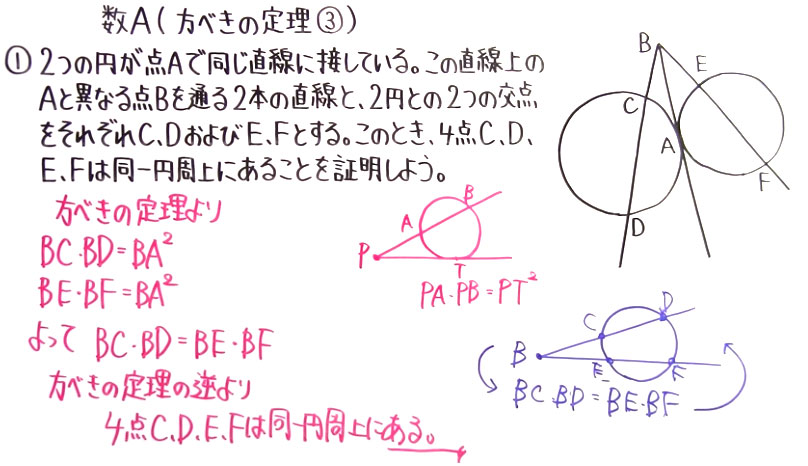 数A(方べきの定理③)
① 2つの円が点Aで同じ直線に接している。この直線上の
Aと異なる点Bを通る2本の直線と、2円との2つの交点
をそれぞれC、DおよびE、Fとする。このとき、4点C、D、
E、Fは同一円周上にあることを証明しよう。
方べきの定理より
BC・BD=BA²
BE・BF=BA²
よって BC・BD=BE・BF
方べきの定理の逆より
4点C、D、E、Fは同一円周上にある。
P
A
B
T
PA・PB=PT²
B
E
C
A
F
D
D
C
B
E
F
BC・BD=BE・BF